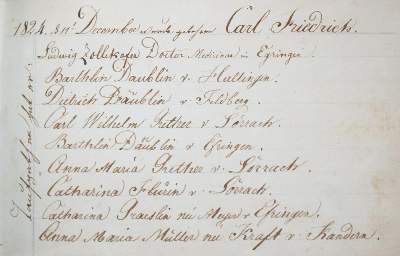 1824. d 11ten December wurde geboren Carl Friedrich.
Ludwig Zollikofer Doctor Medicinae in Egringen
Barthlin Däublin v. Huttingen.
Dietrich Däublin v. Feldberg.
Carl Wilhelm Grether v. Lörrach.
Barthlin Däublin v. Efringen.
Anna Maria Grether v. Lörrach.
Catharina Flürin v. Lörrach.
Catharina Graeslin née Meyer v Efringen.
Anna Maria Müller née Kraft v. Kandern.